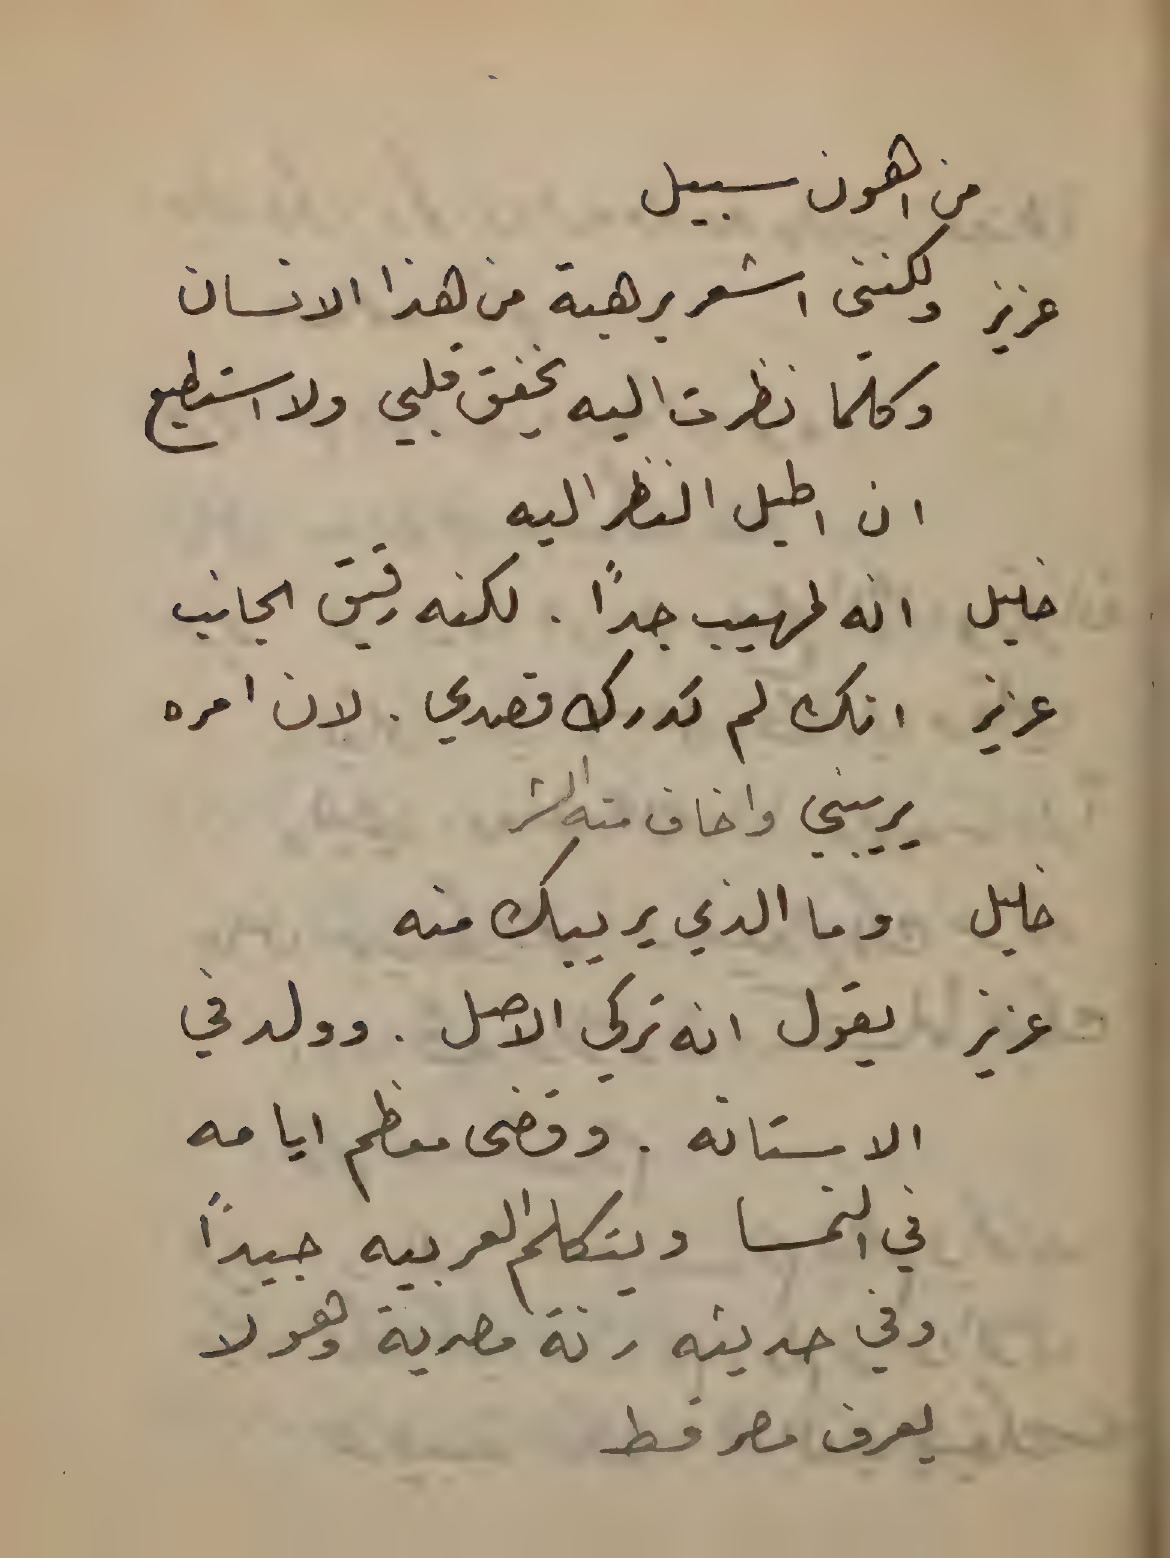 من اهون سبيل
عزيز ولكنني اشعر برهبة من هذا الانسان
وكلما نظرت اليه يخفق قلبي ولا استطيع
ان اطيل النظر اليه
خليل انه لمهيب جداً . لكنه رقيق الجانب
عزيز انك لم تدرك قصدي . لان امره
يريبني واخاف منه الشر
خليل وما الذي يريبك منه
عزيز يقول انه تركي الاصل . وولد في
الاستانه . وقضى معظم ايامه
في النمسا ويتكلم العربيه جيداً
وفي حديثه رنة مصرية وهو لا
يعرف مصر قط